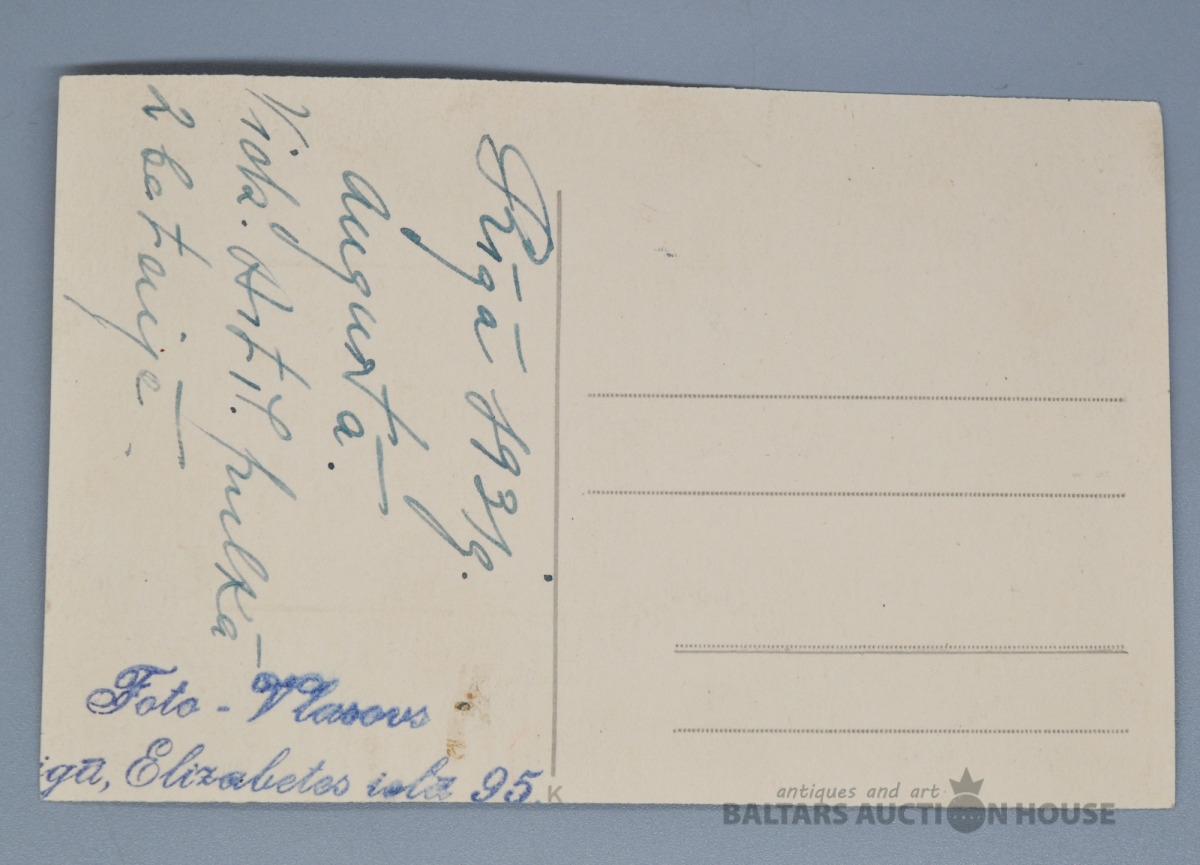 Rīgā 1931g.
Augustā.
Vidz. Artil. pulkā
2 baterijā
Foto - Vlasovs
īgā, Elizabetes ielā 95.
K
antiques and art
BALTARS AUCTION HOUSE